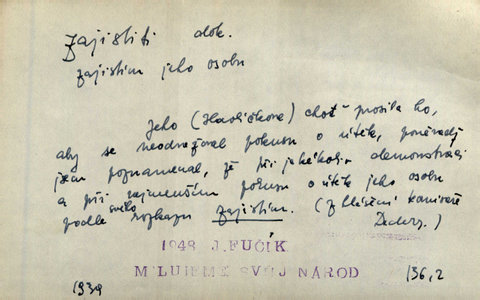 zajistiti dok.
zajistím jeho osobu
Jeho (Havlíčkova) choť prosila ho,
aby se neodvažoval pokusu o útěk, poněvadž
jsem poznamenal, že při jakékoli demonstraci
a při nejmenším pokusu o útěk jeho osobu
podle svého rozkazu zajistím. (Z hlášení komisaře
Dedery.)
1948 J. FUČÍK
MILUJEME SVŮJ NÁROD
1939 136,2